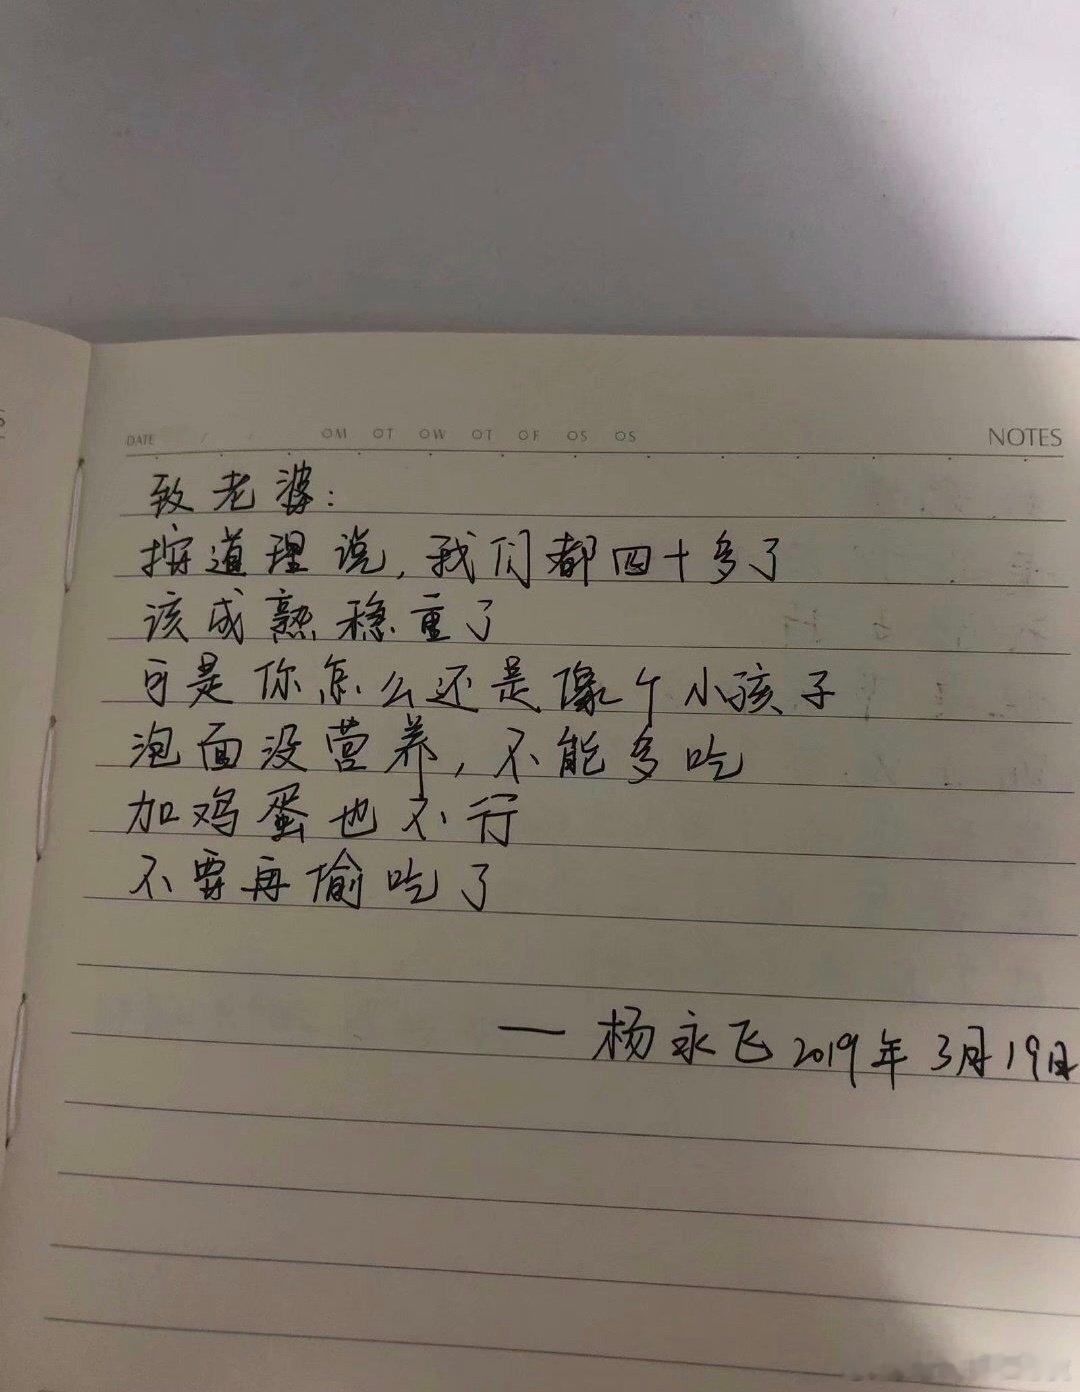 DATE / / OM OT OW OT OF OS OS NOTES
致老婆:
按道理说,我们都四十多了
该成熟稳重了
可是你怎么还是像个小孩子
泡面没营养,不能多吃
加鸡蛋也不行
不要再偷吃了
— 杨永飞 2019年3月19日